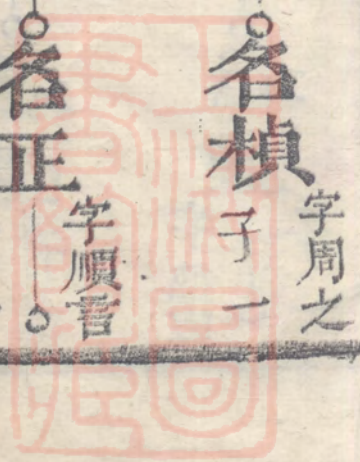 名楨
字周之
子一
名正
字順言